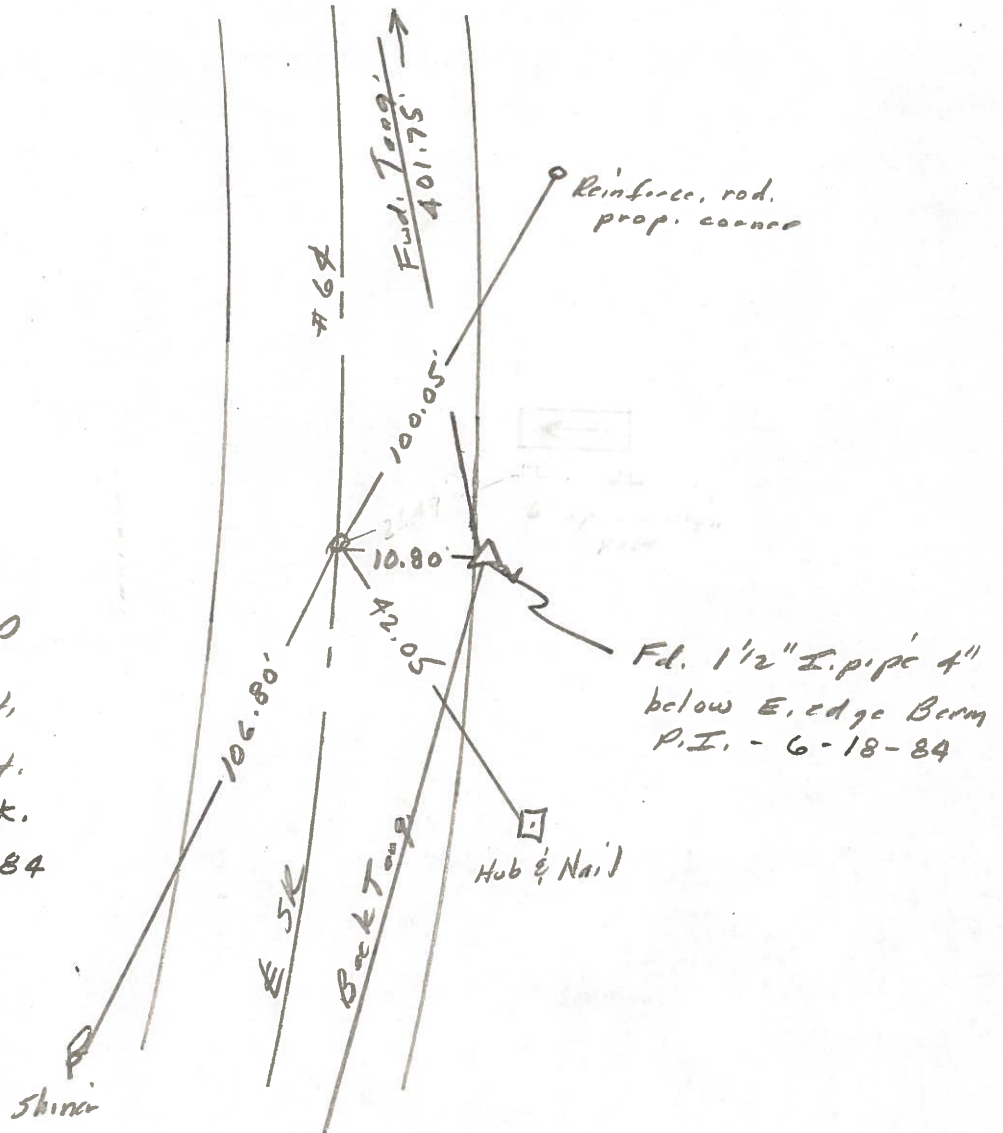 Fwd. Tang.
401.75'
Reinforce. rod.
prop. corner
#64
100.05'
10.80'
42.05
106.80'
Fd. 1 1/2" I. pipe 4"
below E. edge Berm
P.I. - 6-18-84
84
Hub & Nail
℄ SR
Back Tang
Shiner